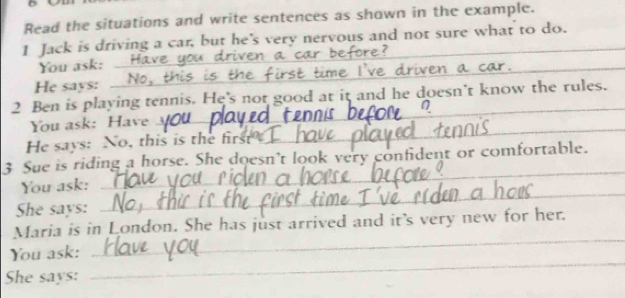 Read the situations and write sentences as shown in the example.
1 Jack is driving a car, but he's very nervous and not sure what to do.
You ask: Have you driven a car before?
He says: No, this is the first time I've driven a car.
2 Ben is playing tennis. He's not good at it and he doesn't know the rules.
You ask: Have you played tennis before ?
He says: No, this is the first I have played tennis
3 Sue is riding a horse. She doesn't look very confident or comfortable.
You ask: Have you riden a horse before?
She says: No, this is the first time I've riden a hors
Maria is in London. She has just arrived and it's very new for her.
You ask: Have you
She says: